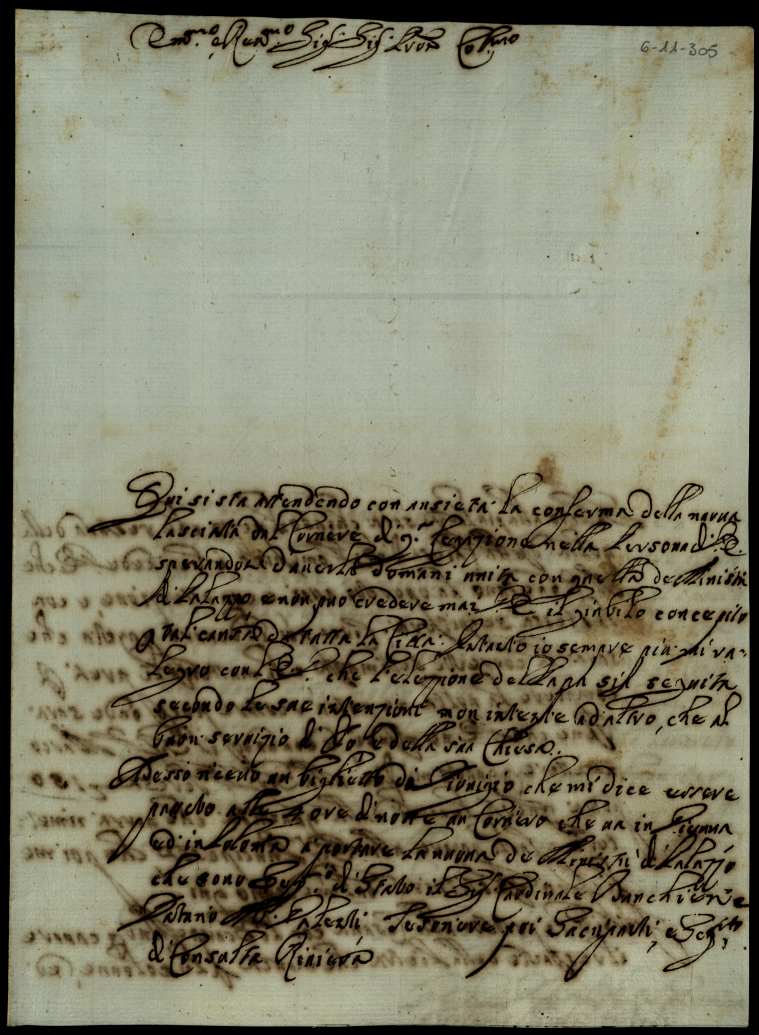 Em.mo e Rev.mo Sig.r Sig.r Pron Col.mo
6-11-305
Qui si sta attendendo con ansietà la conferma della nuova
lasciata dal Corriere di q.ta Legazione nella Persona di V. E.
sperandosi d'averla domani unita con quella de Ministri
di Palazzo e non può credere mai V. E. il giubilo concepito
p tal causa da tutta la Città. Intanto io sempre più mi ra-
legro con V. E. che l'elezzione del Papa sia seguita
secondo le sue intenzioni non intente ad altro, che al
buon servizio di Dio e della sua Chiesa.
Adesso ricevo un biglietto di che mi dice essere
passato alle 4 ore di notte un Corriero che va in Vienna
ed in Polonia a portare la nuova de Ministri di Palazzo
che sono Seg.rio di Stato il Sig.r Cardinale Banchieri
Datario Tesoriere poi Sacripanti, e Seg.rio
di Consulta Riviera